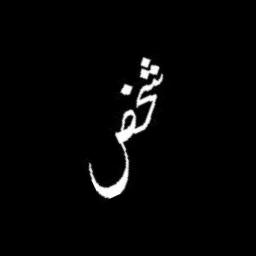 شخص